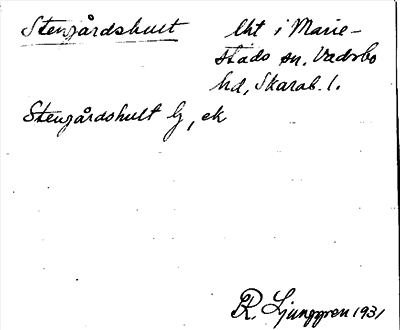 Stengårdshult lht i Marie-
stads sn. Vadsbo
hd, Skarab. l.
Stengårdshult lg, ek
R Ljunggren 1931